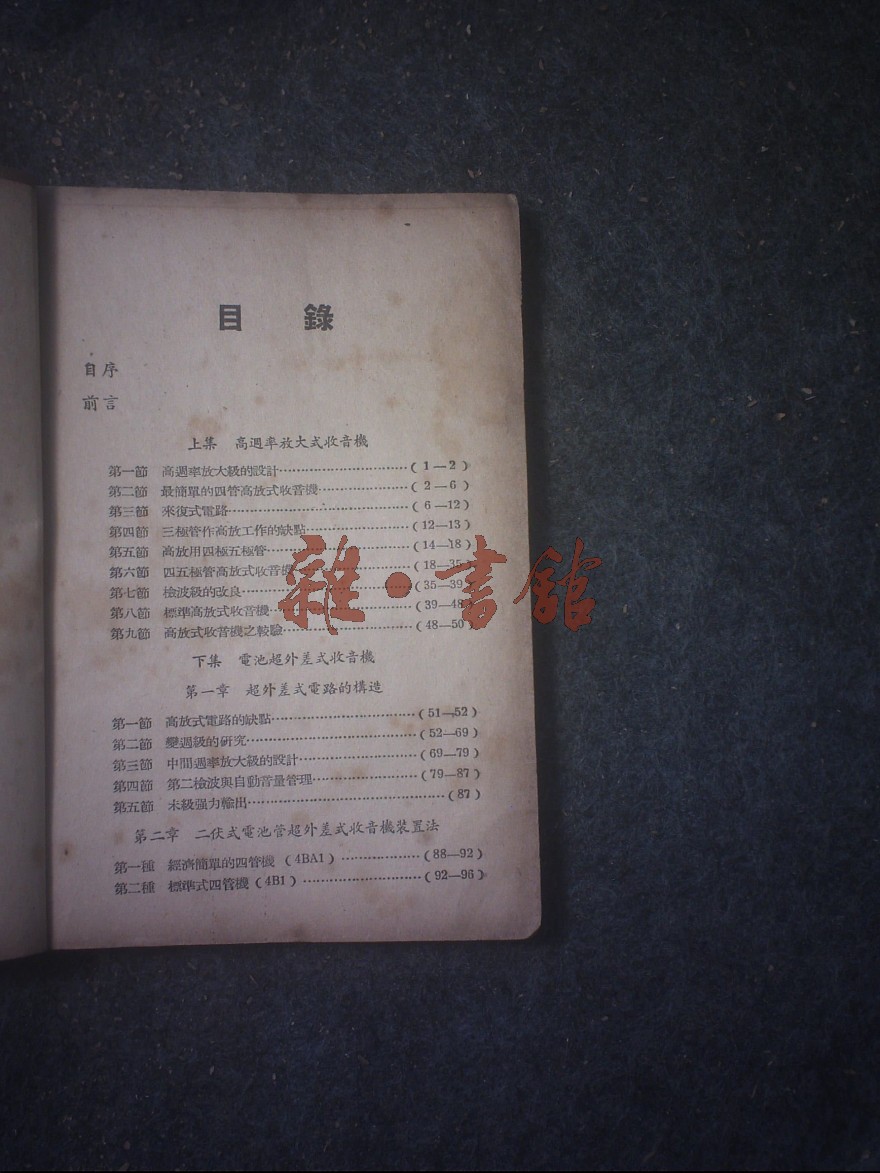 目 錄
自序
前言
上集 高週率放大式收音機
第一節 高週率放大級的設計………………………(1—2)
第二節 最簡單的四管高放式收音機………………(2—6)
第三節 來復式電路…………………………………(6—12)
第四節 三極管作高放工作的缺點…………………(12—13)
第五節 高放用四極五極管…………………………(14—18)
第六節 四五極管高放式收音機……………………(18—35)
第七節 檢波級的改良………………………………(35—39)
第八節 標準高放式收音機…………………………(39—48)
第九節 高放式收音機之較驗………………………(48—50)
雜·書館
下集 電池超外差式收音機
第一章 超外差式電路的構造
第一節 高放式電路的缺點…………………………(51—52)
第二節 變週級的研究………………………………(52—69)
第三節 中間週率放大級的設計……………………(69—79)
第四節 第二檢波與自動音量管理…………………(79—87)
第五節 末級强力輸出………………………………(87)
第二章 二伏式電池管超外差式收音機裝置法
第一種 經濟簡單的四管機(4BA1)………………(88—92)
第二種 標準式四管機(4B1)……………………(92—96)